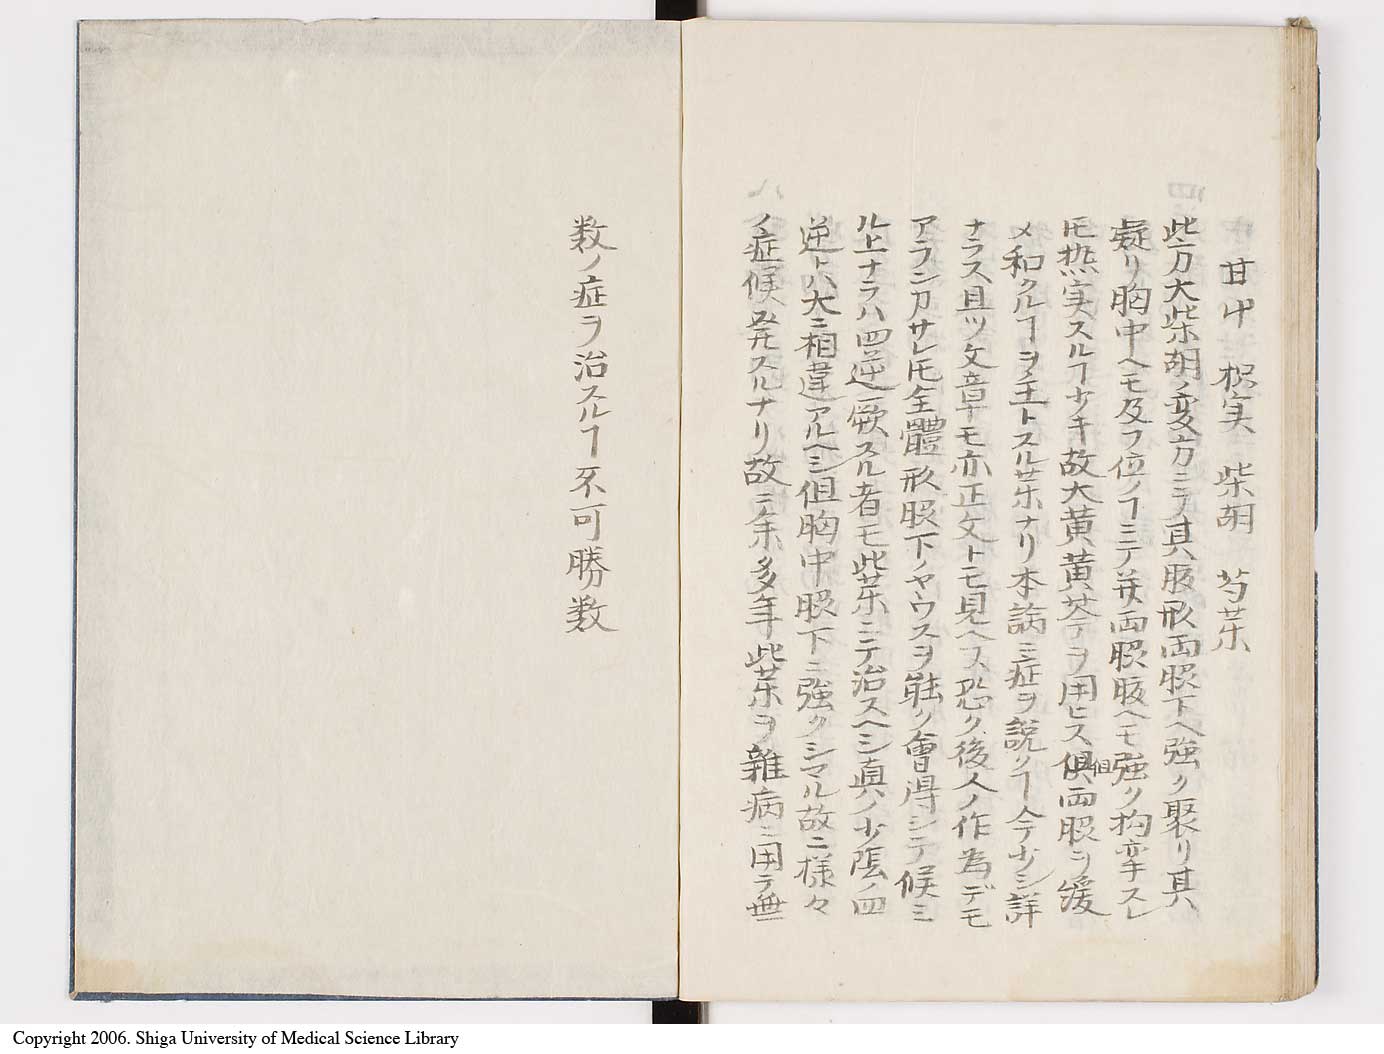 甘艸 枳実 柴胡 芍薬
此方大柴胡ノ変方ニテ其腹形両脇下ヘ強ク聚リ其
凝リ胸中ヘモ及フ位ノヿニテ并両脇腹ヘモ強ク拘挛スレ
𪜈熱実スルヿ少キ故大黄黄芩ヲ用ヒス俱但両脇ヲ緩
メ和クルヿヲ主トスル薬ナリ本論ニ症ヲ説クヿ今少シ詳
ナラス且ツ文章モ亦正文トモ見ヘス恐ク後人ノ作為デモ
アランカサレ𪜈全體形脇下ノヤウスヲ能ク會得シテ候ミ
ル上ナラハ四逆厥スル者モ此薬ニテ治スヘシ真ノ少陰ノ四
逆トハ大ニ相違アルヘシ但胸中脇下ニ強クシマル故ニ様々
ノ症候発スルナリ故ニ余多年此薬ヲ雜病ニ用テ無
数ノ症ヲ治スルヿ不可勝数
Copyright 2006. Shiga University of Medical Science Library